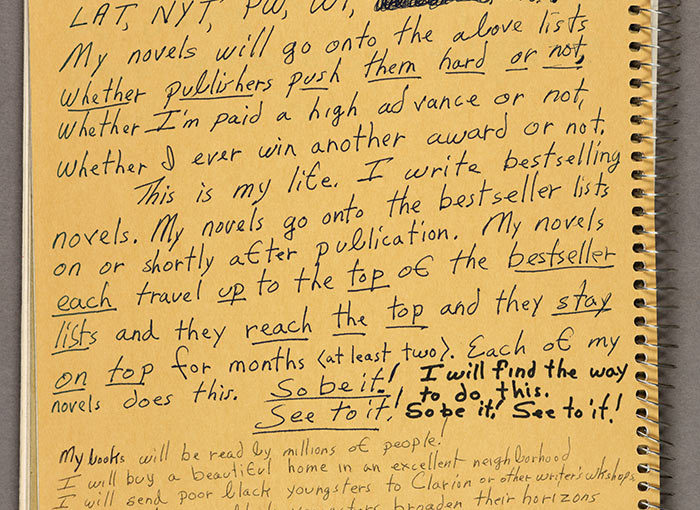 LAT, NYT, PW, WP,
My novels will go onto the above lists
whether publishers push them hard or not,
whether I'm paid a high advance or not,
whether I ever win another award or not.
This is my life. I write bestselling
novels. My novels go onto the bestseller lists
on or shortly after publication. My novels
each travel up to the top of the bestseller
lists and they reach the top and they stay
on top for months (at least two). Each of my
novels does this. So be it! I will find the way
See to it! to do this.
So be it! See to it!
My books will be read by millions of people!
I will buy a beautiful home in an excellent neighborhood
I will send poor black youngsters to Clarion or other writer's wkshops
black youngsters broaden their horizons